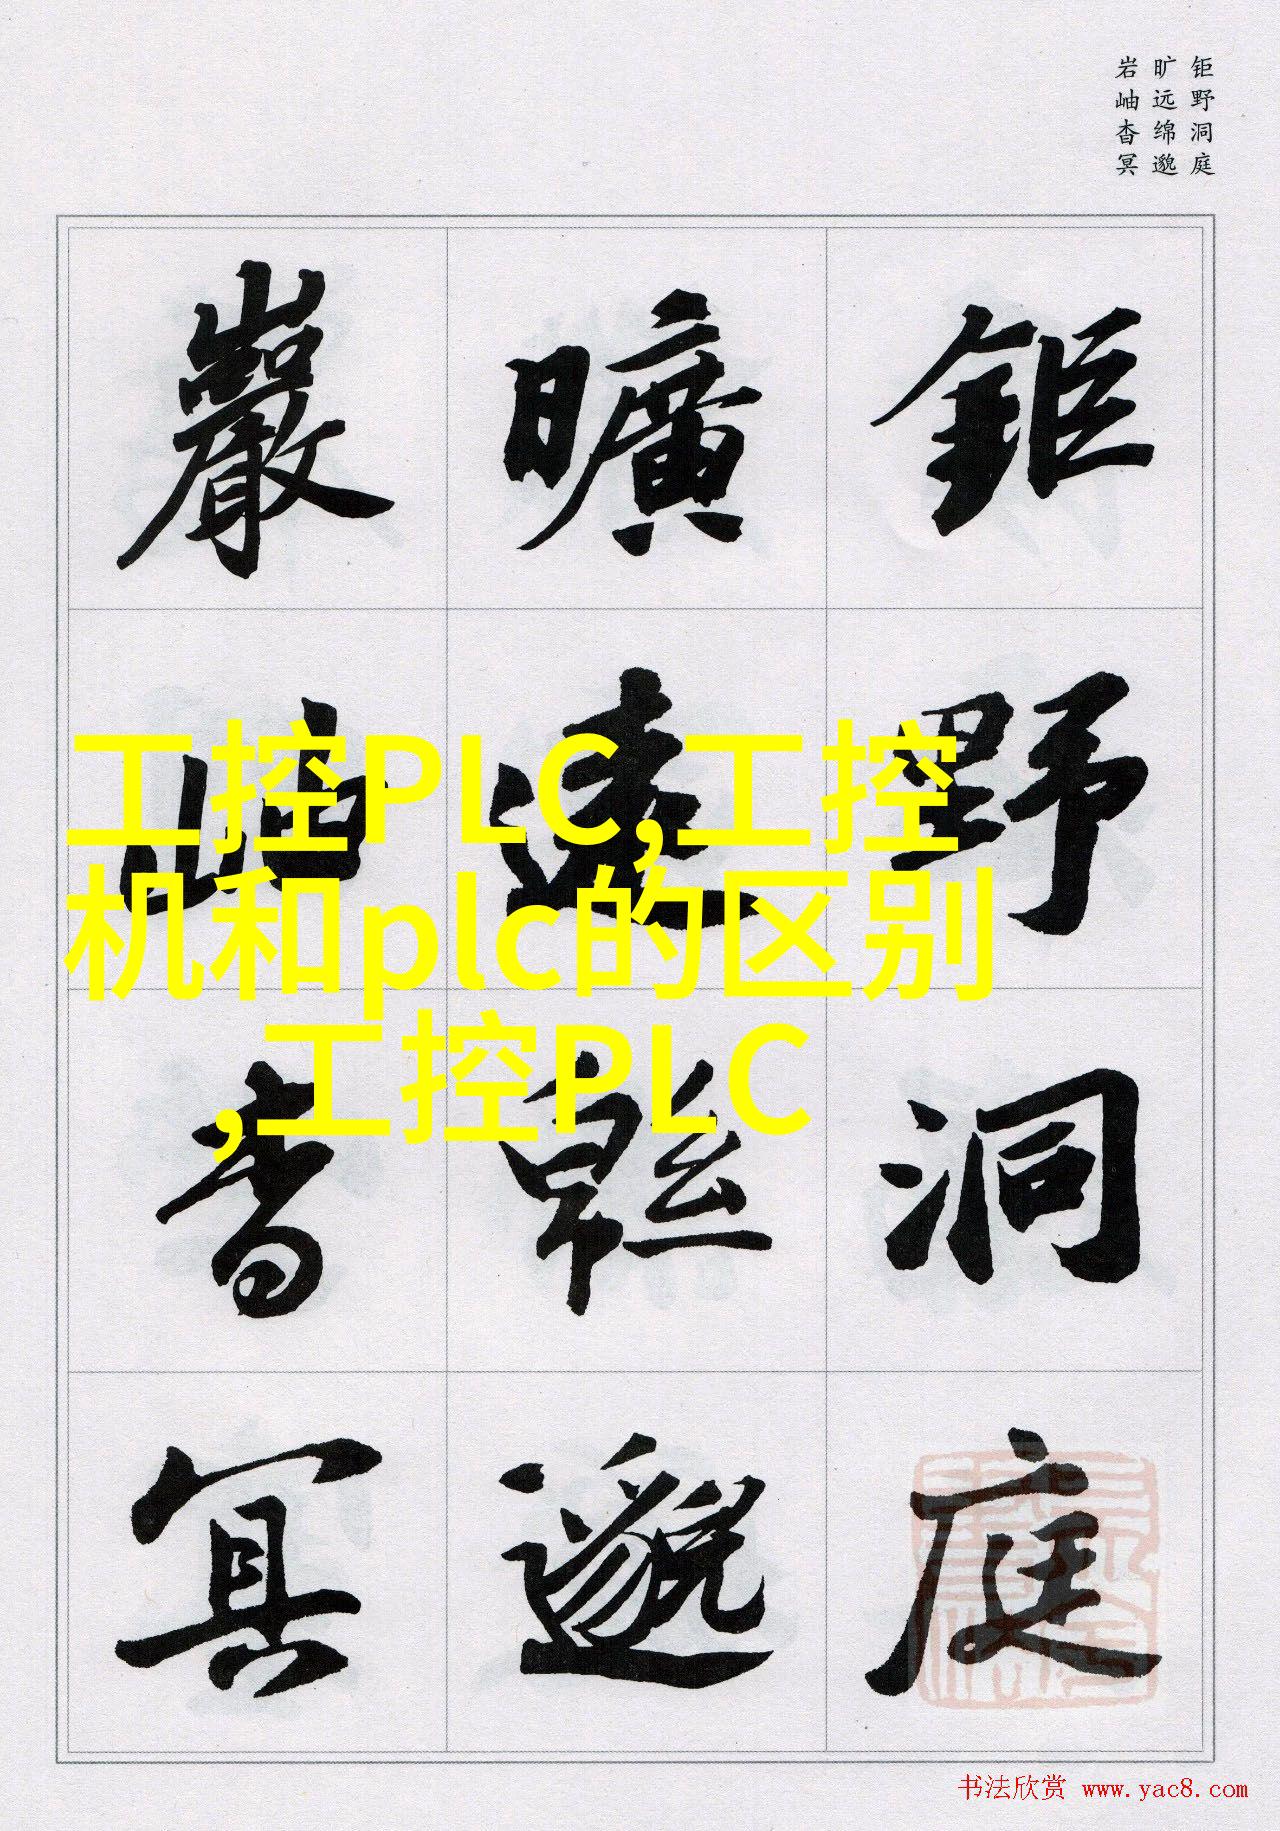 钜野洞庭
旷远绵邈
岩岫杳冥
鉅野洞庭
曠遠緜邈
巖岫杳冥
工控PLC,工控
机和plc的区别
,工控PLC
书法欣赏 www.yac8.com